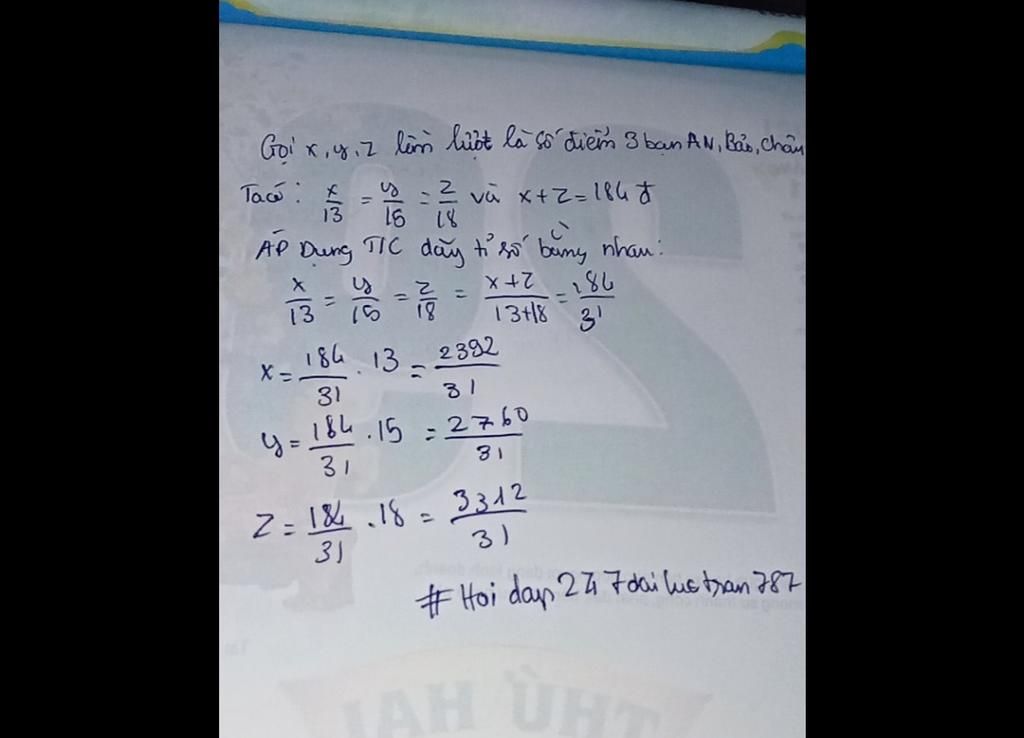 Gọi x, y, z lần lượt là số điểm 3 bạn AN, Bảo, Châu
Ta có: x/13 = y/15 = z/18 và x+z=184 đ
ÁP Dụng T/C dãy tỉ số bằng nhau:
x/13 = y/15 = z/18 = x+z/13+18 = 184/31
x = 184/31 . 13 = 2392/31
y = 184/31 . 15 = 2760/31
z = 184/31 . 18 = 3312/31
# Hoi dap 247 dai luc tran 787
THỨ HAI